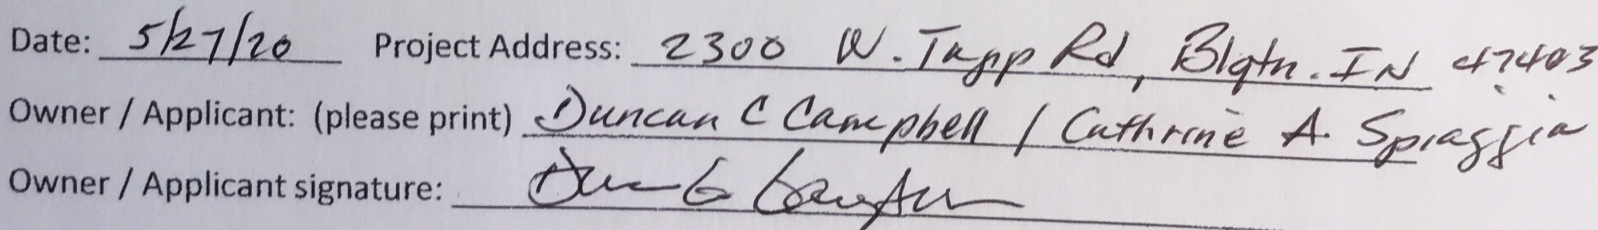 Date: 5/27/20 Project Address: 2300 W. Tapp Rd, Blgtn. IN 47403
Owner / Applicant: (please print) Duncan C Campbell / Cathrine A. Spiaggia
Owner / Applicant signature: